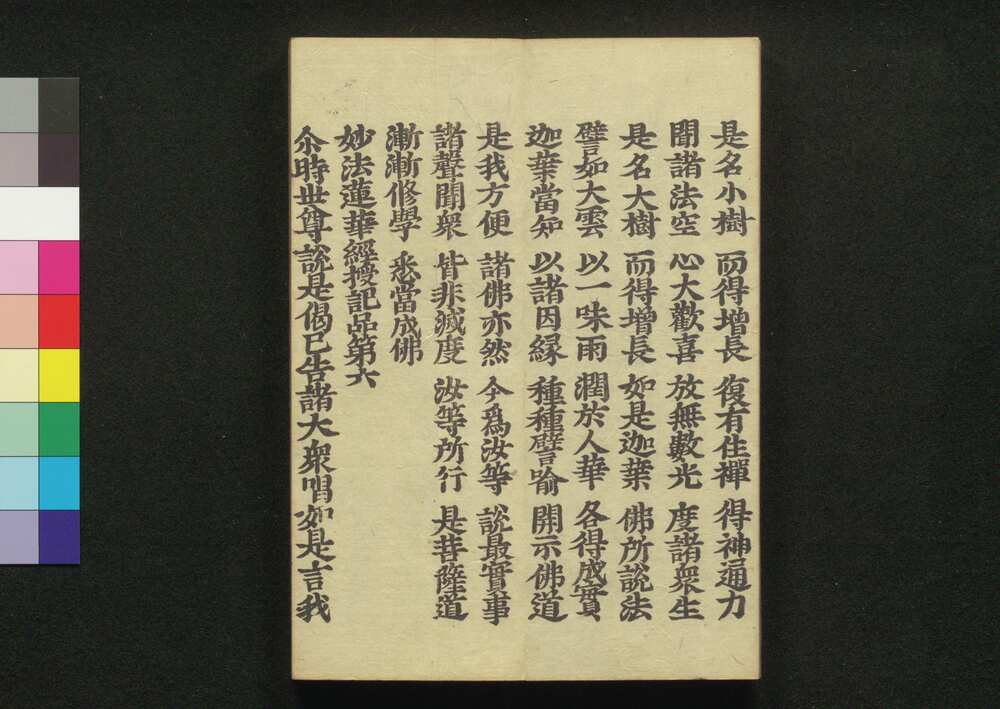 是名小樹　而得增長　復有住禪　得神通力
聞諸法空　心大歡喜　放無數光　度諸衆生
是名大樹　而得增長　如是迦葉　佛所說法
譬如大雲　以一味雨　潤於人華　各得成實
迦葉當知　以諸因緣　種種譬喻　開示佛道
是我方便　諸佛亦然　今爲汝等　說最實事
諸聲聞衆　皆非滅度　汝等所行　是菩薩道
漸漸修學　悉當成佛
妙法蓮華經授記品第六
尒時世尊說是偈已告諸大衆唱如是言我